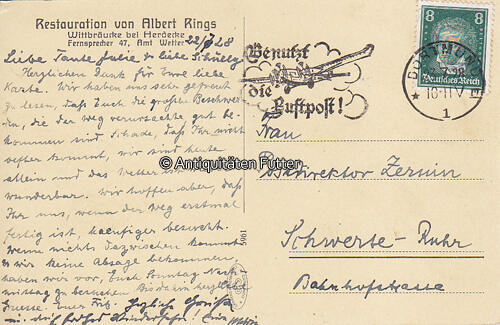 Restauration von Albert Rings
Wittbräucke bei Herdecke
Fernsprecher 47, Amt Wetter
22/7 28
Liebe Tante Julie & liebe
Herzlichen Dank für Eure liebe
Karte. Wir haben uns sehr gefreut
zu lesen, daß Euch die großen Beschwer-
den, die der Weg verursachte gut be-
kommen sind. Schade, daß Ihr nicht
oefter kommt, wir sind heute
allein und das Wetter ist
wunderbar. Wir hoffen aber, daß
Ihr uns, wenn der Weg erstmal
fertig ist, haeufiger besucht.
Wenn nichts dazwischen kommt
& wir keine Absage bekommen,
haben wir vor, Euch Sonntag Nach-
mittag zu besuchen. Bis dahin herzliche
Gruesse. Eure
Herzliche Grüße
Benutzt
die
Luftpost!
DORTMUND
1
8 8
Deutsches Reich
Frau
Schwerte-Ruhr
Bahnhofstrasse
5961
© Antiquitäten Futter